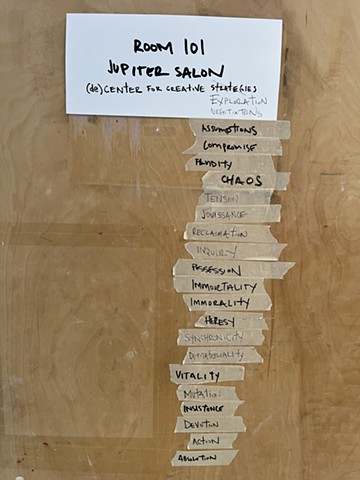 ROOM 101
JUPITER SALON
(de)CENTER FOR CREATIVE STRATEGIES
EXPLORATION
NEGOTIATIONS
ASSUMPTIONS
COMPROMISE
FLUIDITY
CHAOS
TENSION
JOUISSANCE
RECLAMATION
INQUIRY
POSSESSION
IMMORTALITY
IMMORALITY
HERESY
SYNCHRONICITY
VITALITY
MUTATION
INSISTENCE
DEVOTION
ACTION
ABOLITION